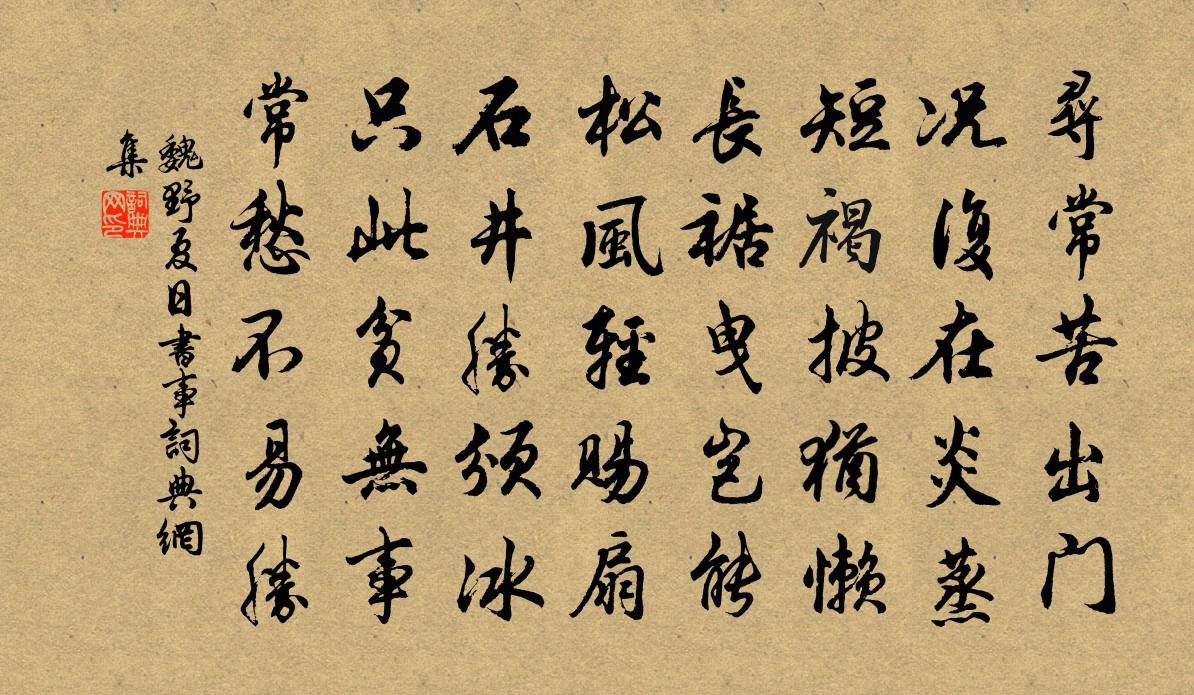 尋常苦出门
况復在炎蒸
短褐披猶懒
長裾曳豈能
松風輕賜扇
石井勝頒冰
只此貧無事
常愁不易勝
魏野夏日書事詞典網
集
詞典網印